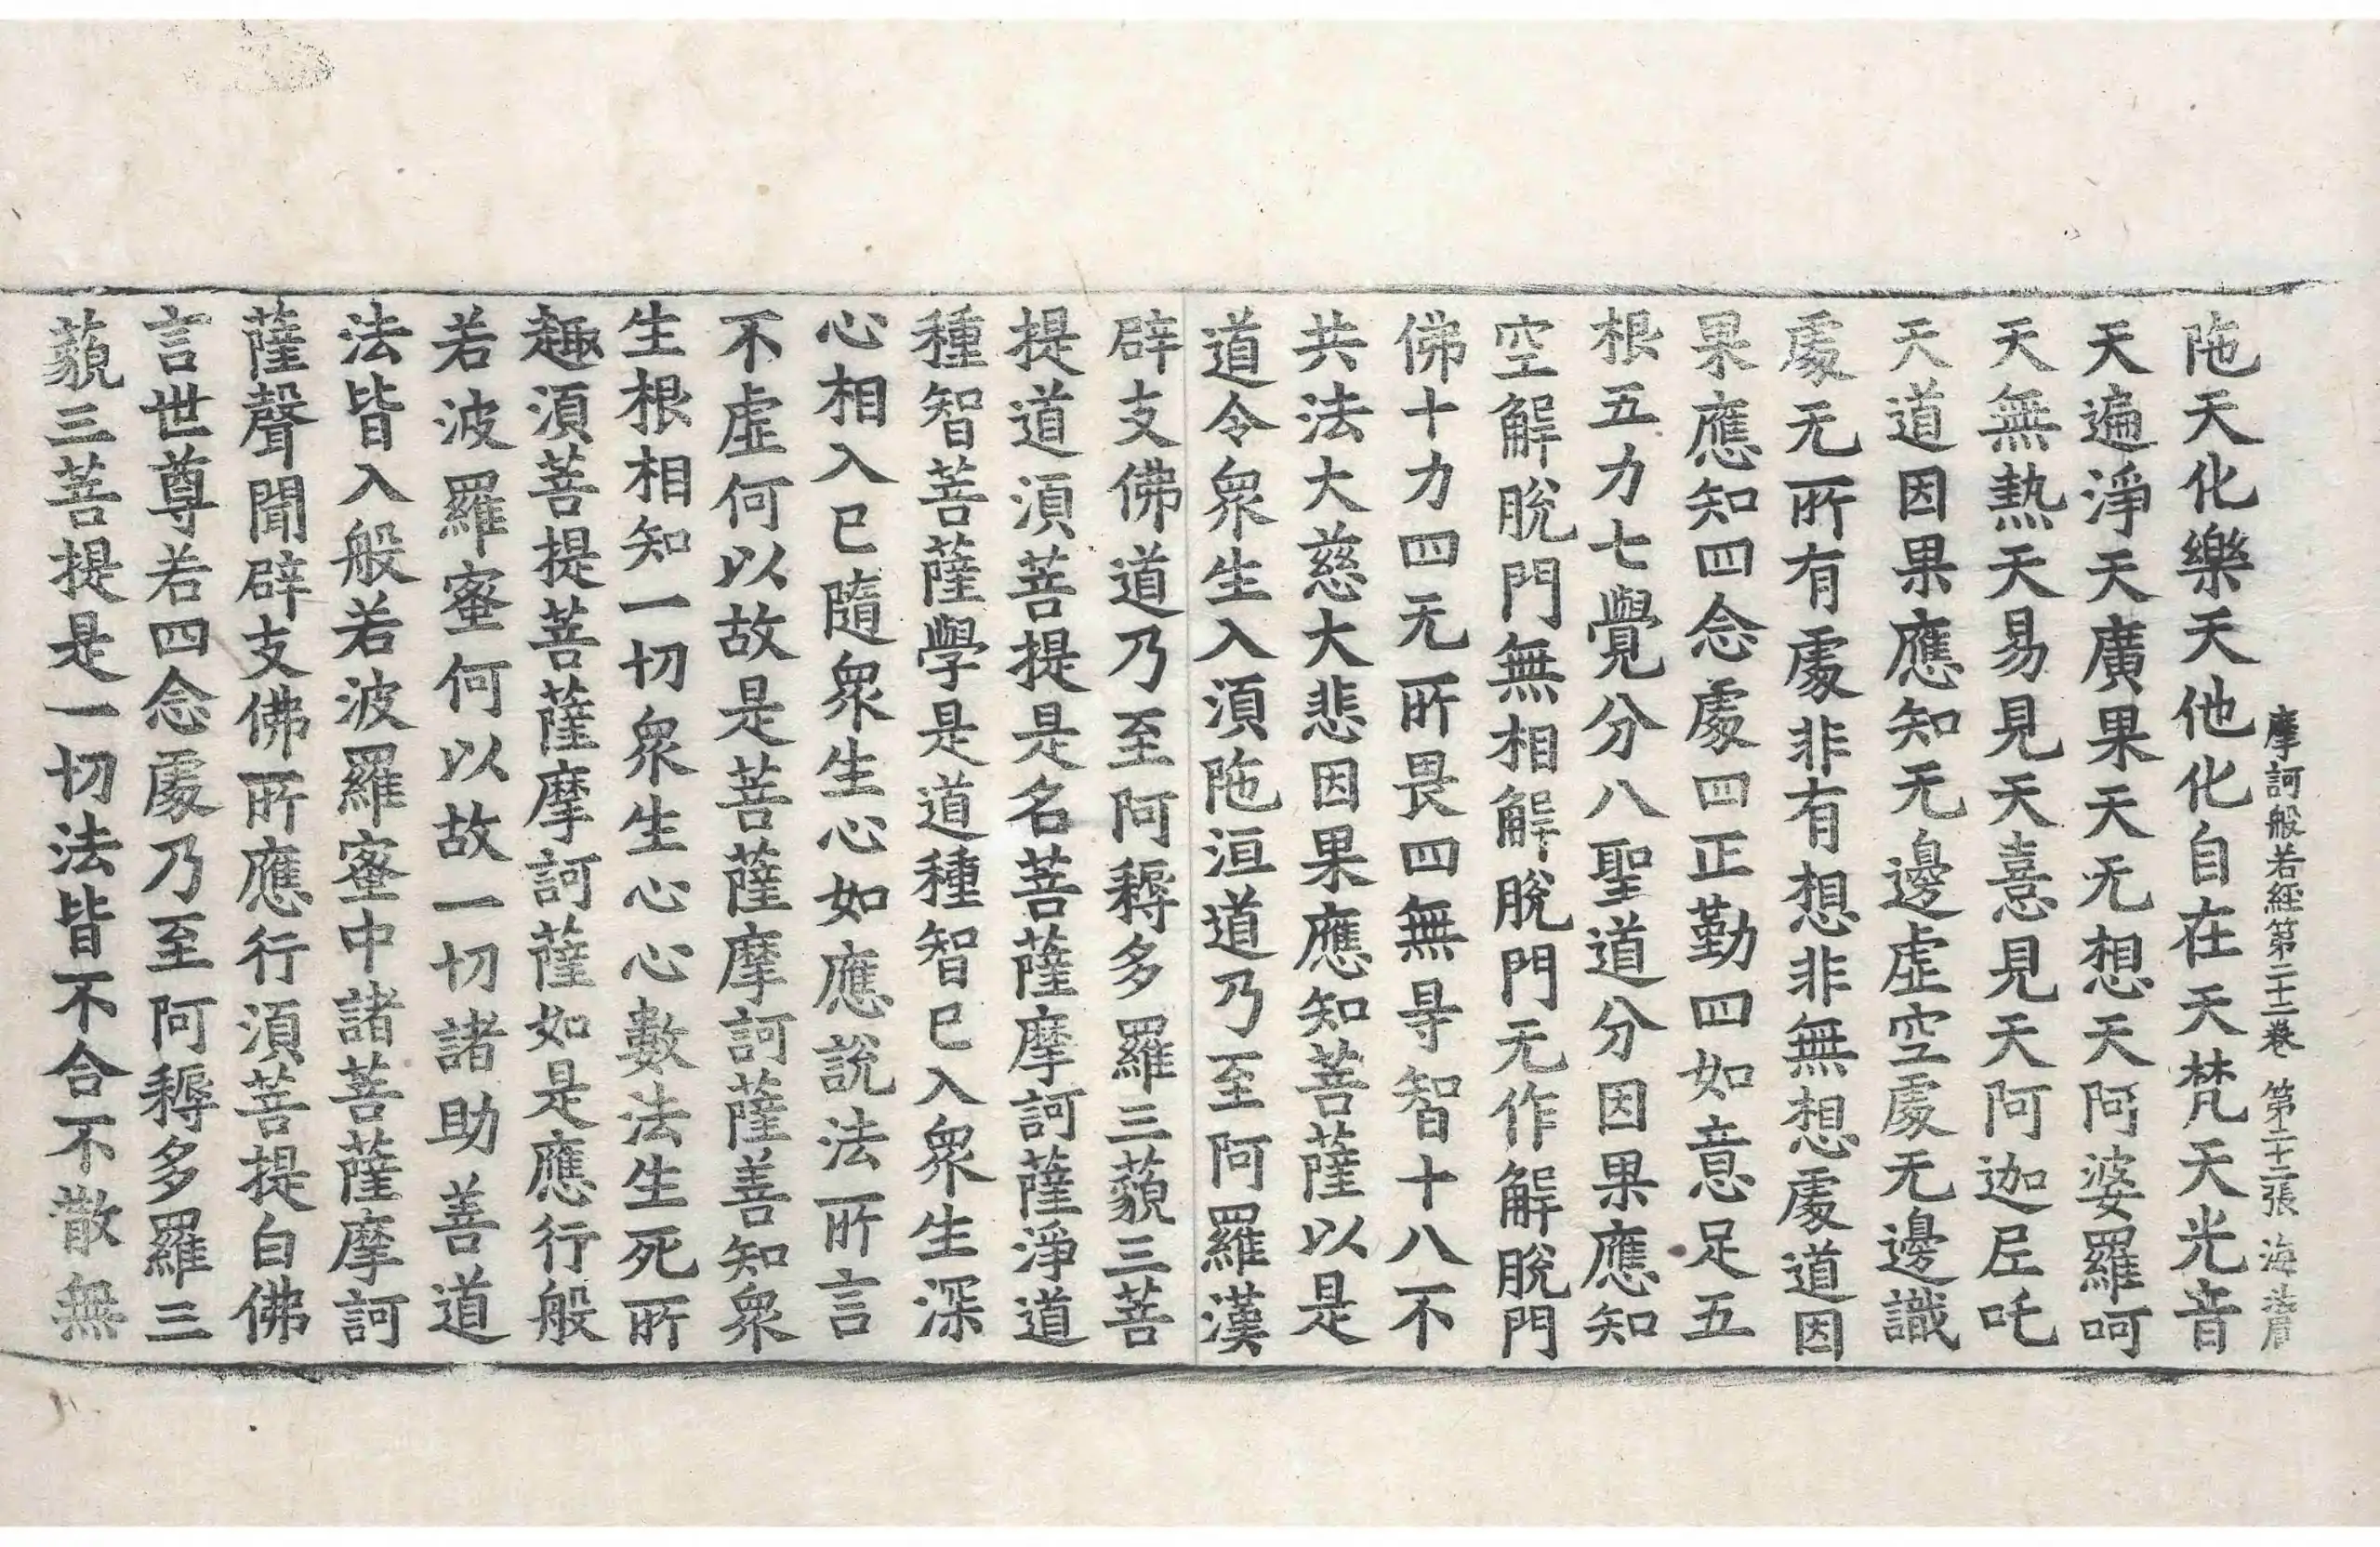 摩訶般若經第二十二卷 第二十二張 海
陁天化樂天他化自在天梵天光音
天遍淨天廣果天无想天阿婆羅呵
天無熱天易見天憙見天阿迦尼吒
天道因果應知无邊虛空處无邊識
處无所有處非有想非無想處道因
果應知四念處四正勤四如意足五
根五力七覺分八聖道分因果應知
空解脫門無相解脫門无作解脫門
佛十力四无所畏四無㝵智十八不
共法大慈大悲因果應知菩薩以是
道令衆生入湏陁洹道乃至阿羅漢
辟支佛道乃至阿耨多羅三藐三菩
提道湏菩提是名菩薩摩訶薩淨道
種智菩薩學是道種智已入衆生深
心相入已隨衆生心如應說法所言
不虛何以故是菩薩摩訶薩善知衆
生根相知一切衆生心心數法生死所
趣湏菩提菩薩摩訶薩如是應行般
若波羅蜜何以故一切諸助善道
法皆入般若波羅蜜中諸菩薩摩訶
薩聲聞辟支佛所應行湏菩提白佛
言世尊若四念處乃至阿耨多羅三
藐三菩提是一切法皆不合不散無